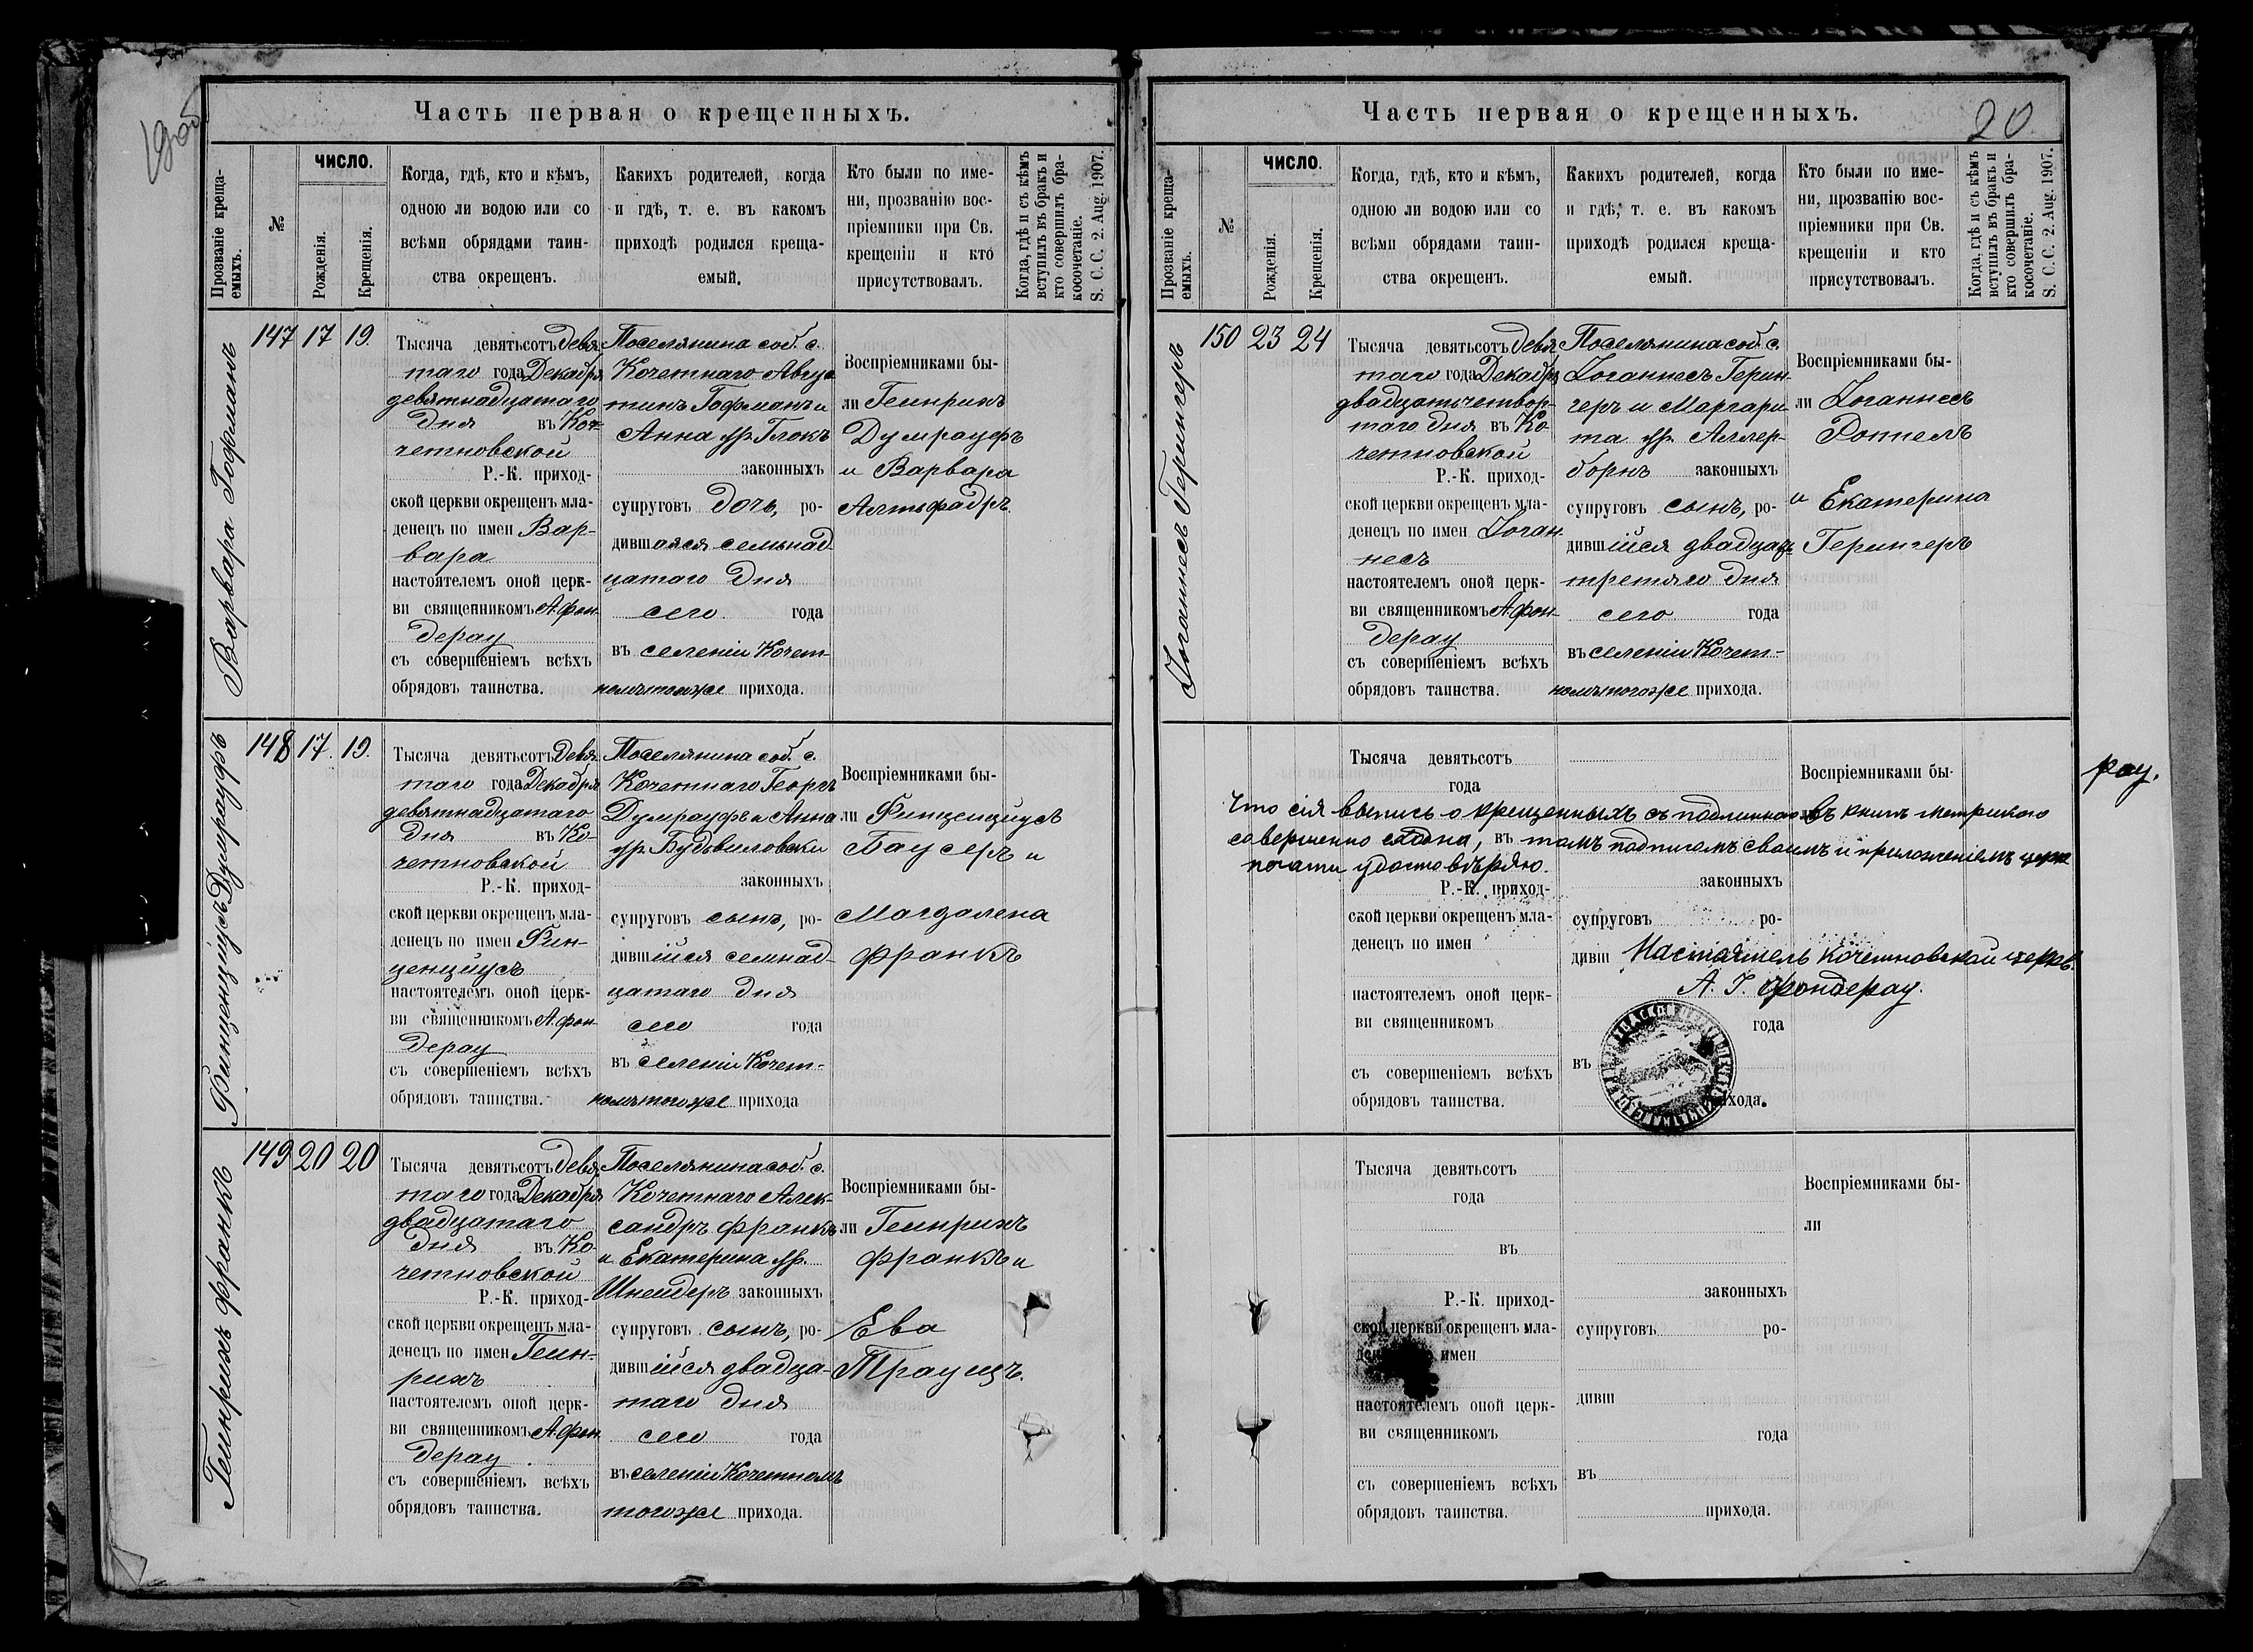 Часть первая о крещенныхъ.
Прозваніе креща-
емыхъ.
№
ЧИСЛО.
Рожденія.
Крещенія.
Когда, гдѣ, кто и кѣмъ,
одною ли водою или со
всѣми обрядами таин-
ства окрещенъ.
Какихъ родителей, когда
и гдѣ, т. е. въ какомъ
приходѣ родился креща-
емый.
Кто были по име-
ни, прозванію вос-
пріемники при Св.
крещеніи и кто
присутствовалъ.
Когда, гдѣ и съ кѣмъ
вступилъ въ бракъ и
кто совершилъ бра-
косочетаніе.
S. C. C. 2. Aug. 1907.
Варвара Гофманъ
147 17 19.
Тысяча девятсотъ девя-
таго года Декабря
девятнадцатаго
дня въ Коч-
четновской
Р.-К. приход-
ской церкви окрещенъ мла-
денецъ по имен Вар-
вара
настоятелемъ оной церк-
ви священникомъ А. фон-
дерау
съ совершеніемъ всѣхъ
обрядовъ таинства.
Поселянина соб. с.
Кочетнаго Авгус
тинъ Гофманъ и
Анна ур. Глокъ
законныхъ
супруговъ дочь, ро-
дившаяся семьнад
цатаго дня
сего года
въ селеніи Кочет-
номъ тогоже прихода.
Воспріемниками бы-
ли Геинрихъ
Думрауфъ
и Варвара
Альтфадръ
Финценціусъ Думрауфъ
148 17. 19.
Тысяча девятсотъ девя-
таго года Декабря
девятнадцатаго
дня въ Ко-
четновской
Р.-К. приход-
ской церкви окрещенъ мла-
денецъ по имен Фин-
ценціусъ
настоятелемъ оной церк-
ви священникомъ А. фон-
дерау
съ совершеніемъ всѣхъ
обрядовъ таинства.
Поселянина соб. с.
Кочетнаго Георгъ
Думрауфъ и Анна
ур. Будвиловски
законныхъ
супруговъ сынъ, ро-
дившійся семнад-
цатаго дня
сего года
въ селеніи Кочет-
номъ тогоже прихода
Воспріемниками бы-
ли Финценціусъ
Баусеръ и
Магдалена
Франкъ
Геинрихъ Франкъ
149 20 20
Тысяча девятсотъ девя-
таго года Декабря
двадцатаго
дня въ Ко-
четновской
Р.-К. приход-
ской церкви окрещенъ мла-
денецъ по имен Геин-
рихъ
настоятелемъ оной церк-
ви священникомъ А. фон
дерау
съ совершеніемъ всѣхъ
обрядовъ таинства.
Поселянина соб. с.
Кочетнаго Алек-
сандръ Франкъ
и Екатерина ур.
Шнейдеръ законныхъ
супруговъ сынъ, ро-
дившійся двадца-
таго дня
сего года
въ селеніи Кочетномъ
тогоже прихода.
Воспріемниками бы-
ли Геинрихъ
Франкъ и
Ева
Трауцъ.
Часть первая о крещенныхъ.
20
Прозваніе креща-
емыхъ.
№
ЧИСЛО.
Рожденія.
Крещенія.
Когда, гдѣ, кто и кѣмъ,
одною ли водою или со
всѣми обрядами таин-
ства окрещенъ.
Какихъ родителей, когда
и гдѣ, т. е. въ какомъ
приходѣ родился креща-
емый.
Кто были по име-
ни, прозванію вос-
пріемники при Св.
крещеніи и кто
присутствовалъ.
Когда, гдѣ и съ кѣмъ
вступилъ въ бракъ и
кто совершилъ бра-
косочетаніе.
S. C. C. 2. Aug. 1907.
Іоганнесъ Герингеръ
150 23 24
Тысяча девятсотъ девя
таго года Декабря
двадцатьчетвер-
таго дня въ Ко
четновской
Р.-К. приход-
ской церкви окрещенъ мла-
денецъ по имен Іоган-
несъ
настоятелемъ оной церк-
ви священникомъ А. фон-
дерау
съ совершеніемъ всѣхъ
обрядовъ таинства.
Поселянина соб. с.
Іоганнесъ Герин-
геръ и Маргари-
та ур. Аллер-
борнъ законныхъ
супруговъ сынъ, ро-
дившійся двадцать
третяго дня
сего года
въ селеніи Кочет-
номъ тогоже прихода.
Воспріемниками бы-
ли Іоганнесъ
Роппелъ
и Екатерина
Герингеръ
Тысяча девятсотъ
года
Воспріемниками бы-
рау.
Что сія выпись о крещенныхъ съ подлинною въ книгѣ метрикою
совершенно сходна, въ томъ подписемъ своимъ и приложеніемъ церк
печати удостовѣряю.
Р.-К. приход-
ской церкви окрещенъ мла-
денецъ по имен
настоятелемъ оной церк-
ви священникомъ
съ совершеніемъ всѣхъ
обрядовъ таинства.
законныхъ
супруговъ ро-
дивш
Настоятель Кочетновской церкв.
А. І. Фондерау.
года
въ
прихода.
Тысяча девятсотъ
года
въ
Р.-К. приход-
ской церкви окрещенъ мла-
имен
настоятелемъ оной церк-
ви священникомъ
съ совершеніемъ всѣхъ
обрядовъ таинства.
законныхъ
супруговъ ро-
дивш
года
въ
прихода.
Воспріемниками бы-
ли